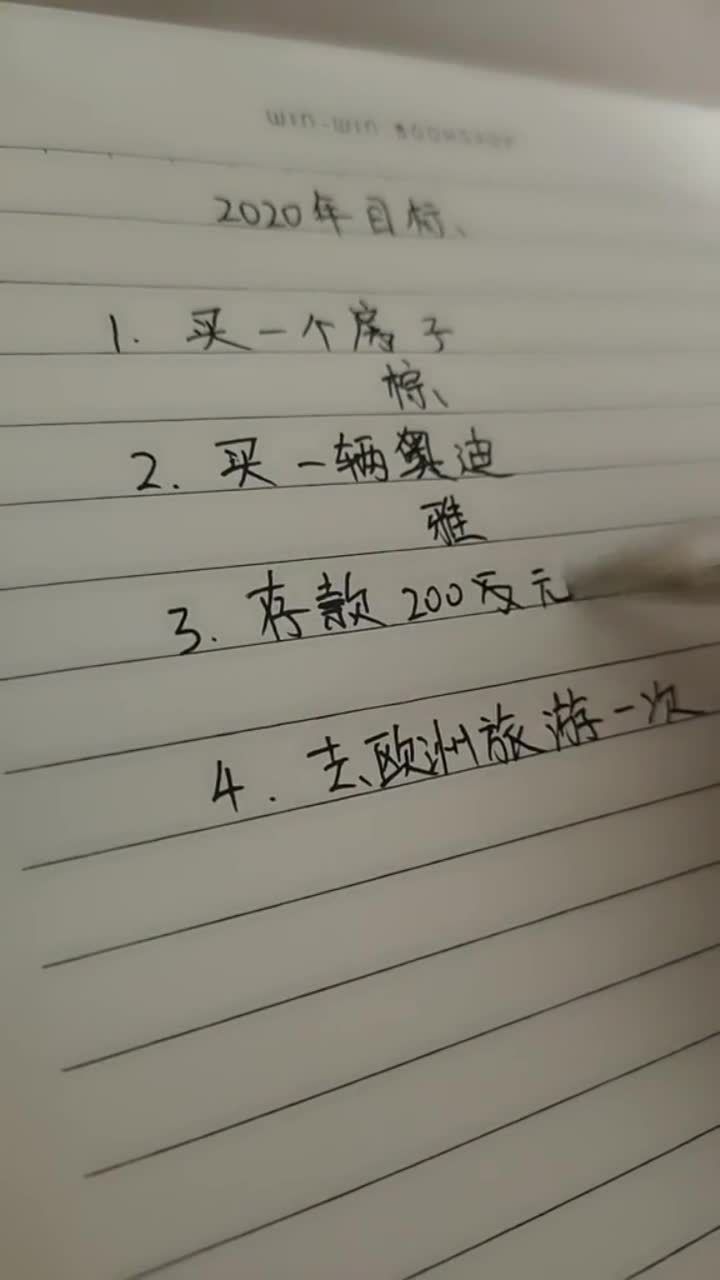 WIN-WIN BOOKSHOP
2020年目标、
1. 买一个房子
棕、
2. 买一辆奥迪
雅
3. 存款200万元
4. 去欧洲旅游一次